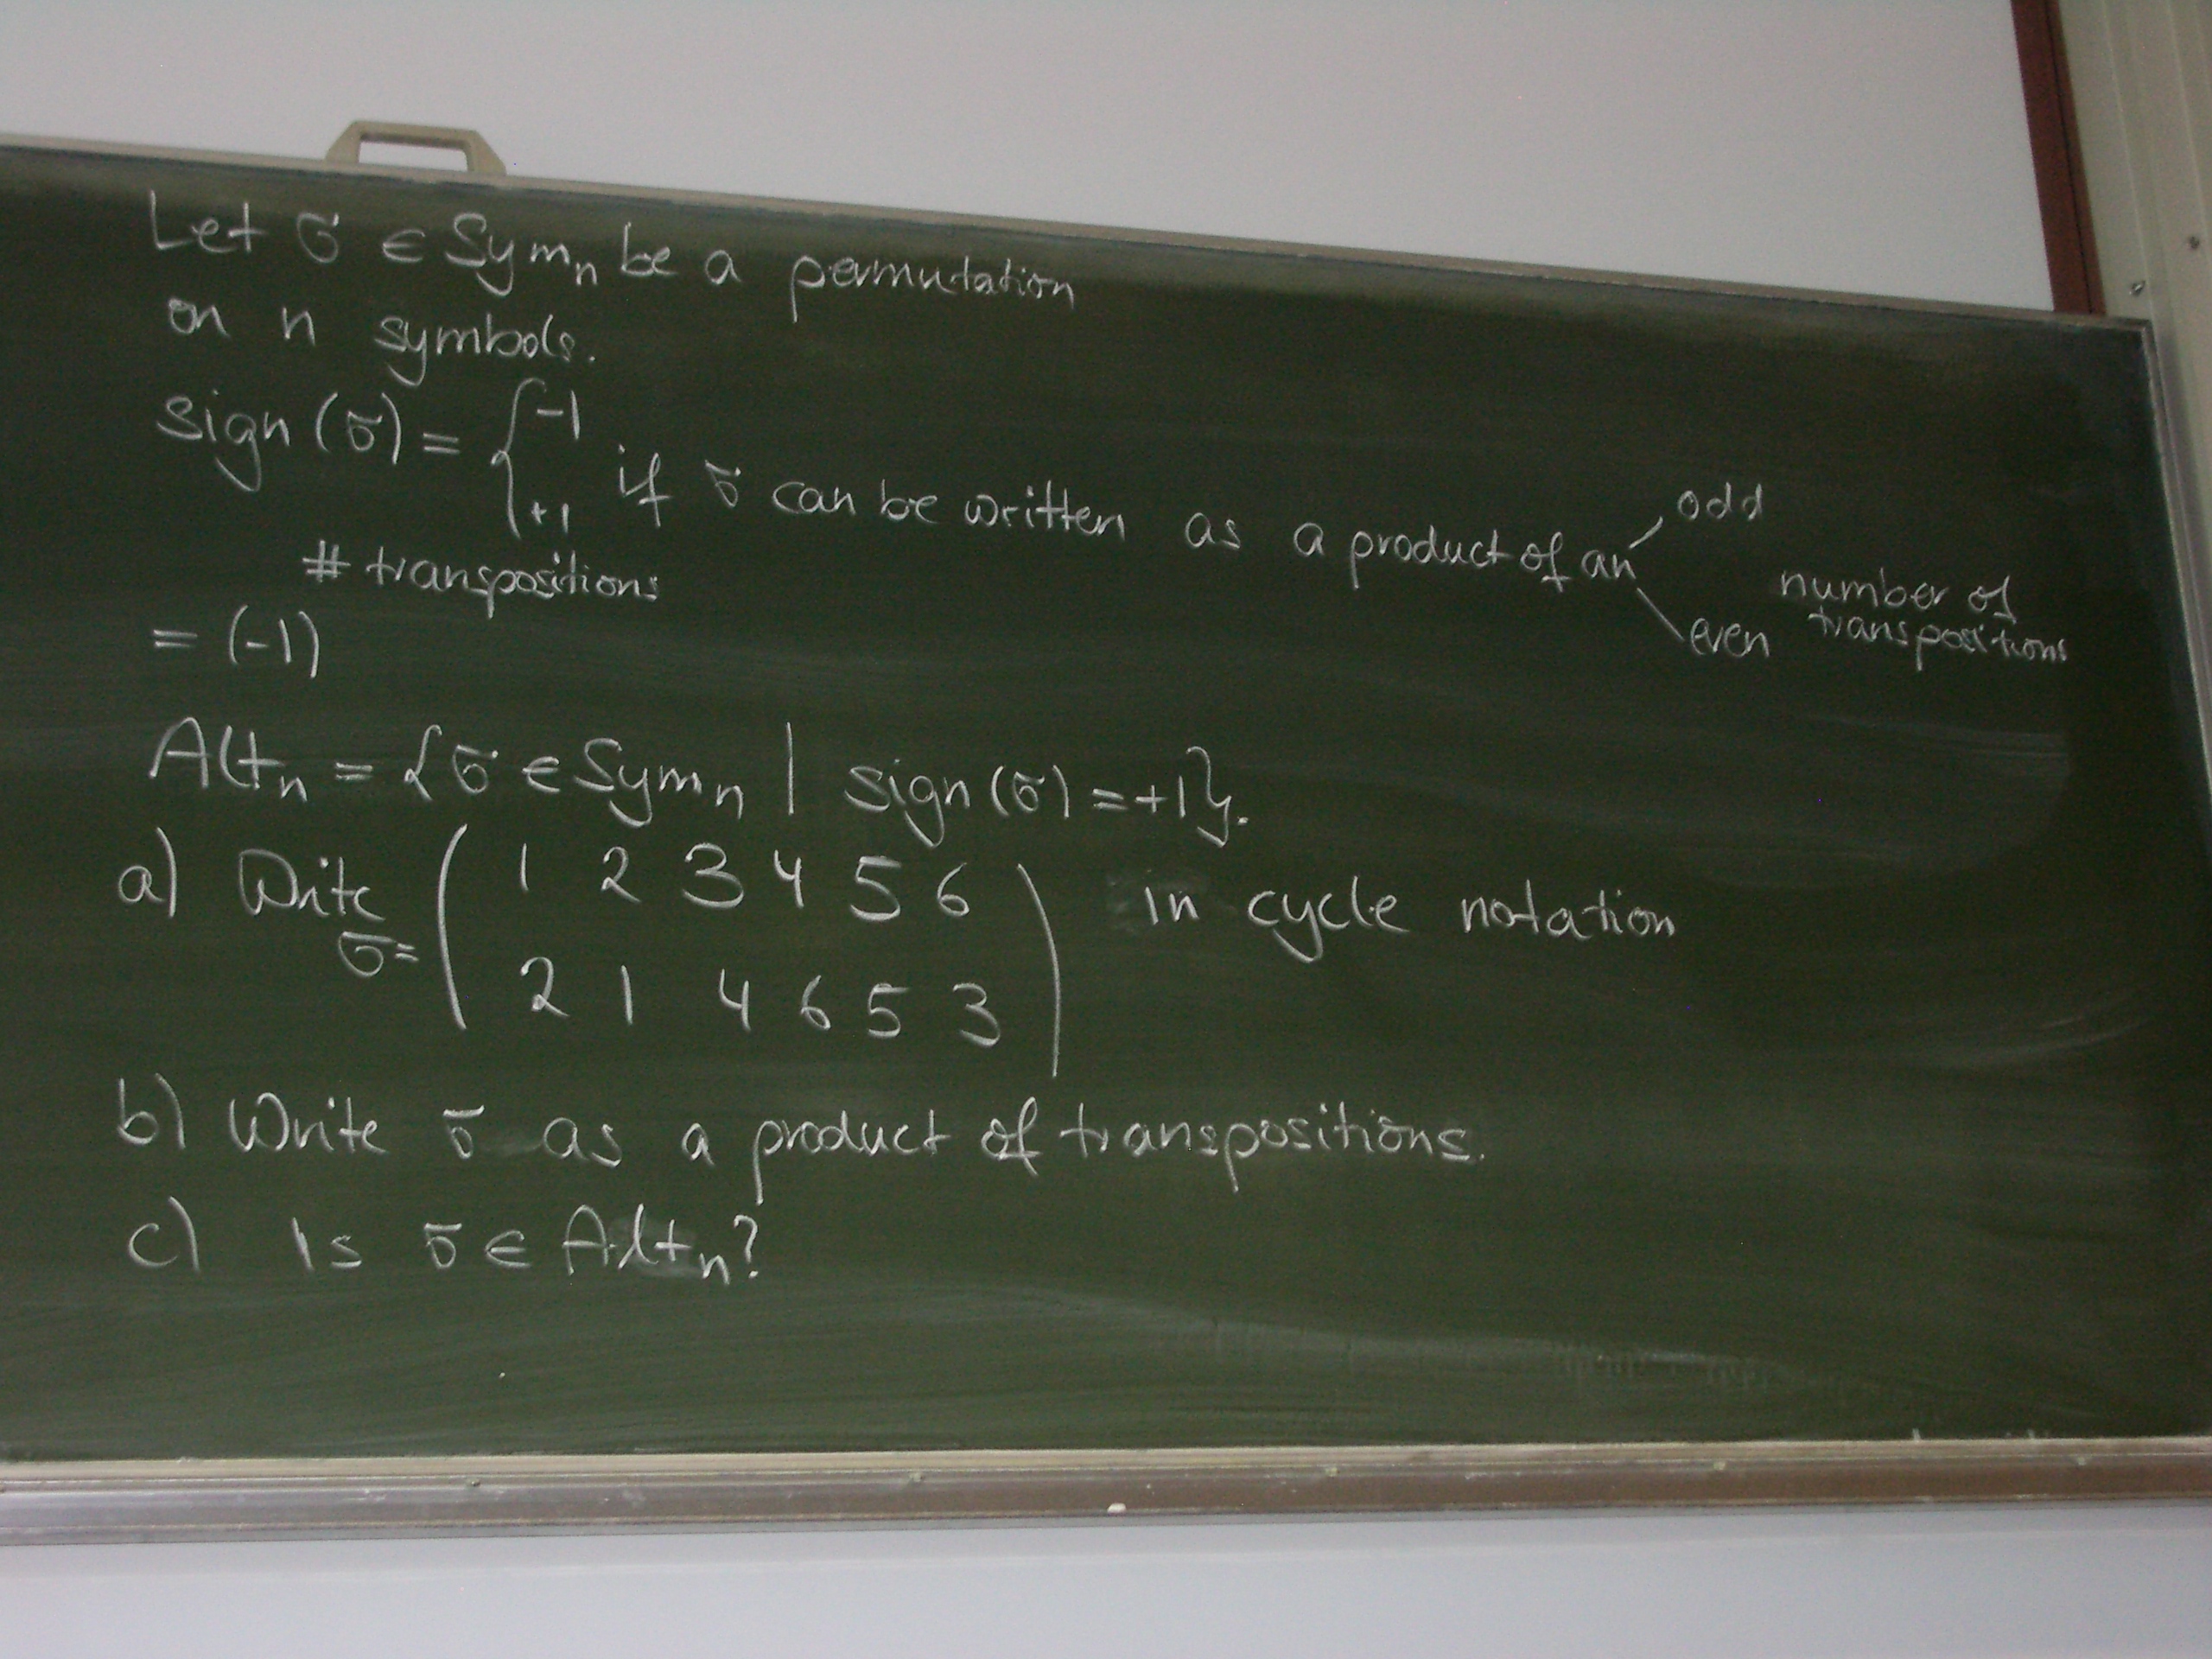 Let σ ∈ Symₙ be a permutation
on n symbols.
sign(σ) = { -1 +1 if σ can be written as a product of an odd even number of transpositions
= (-1)^# transpositions
Altₙ = {σ ∈ Symₙ | sign(σ) = +1}.
a) Write σ = ( 1 2 3 4 5 6 in cycle notation
2 1 4 6 5 3 )
b) Write σ as a product of transpositions.
c) Is σ ∈ Altₙ?